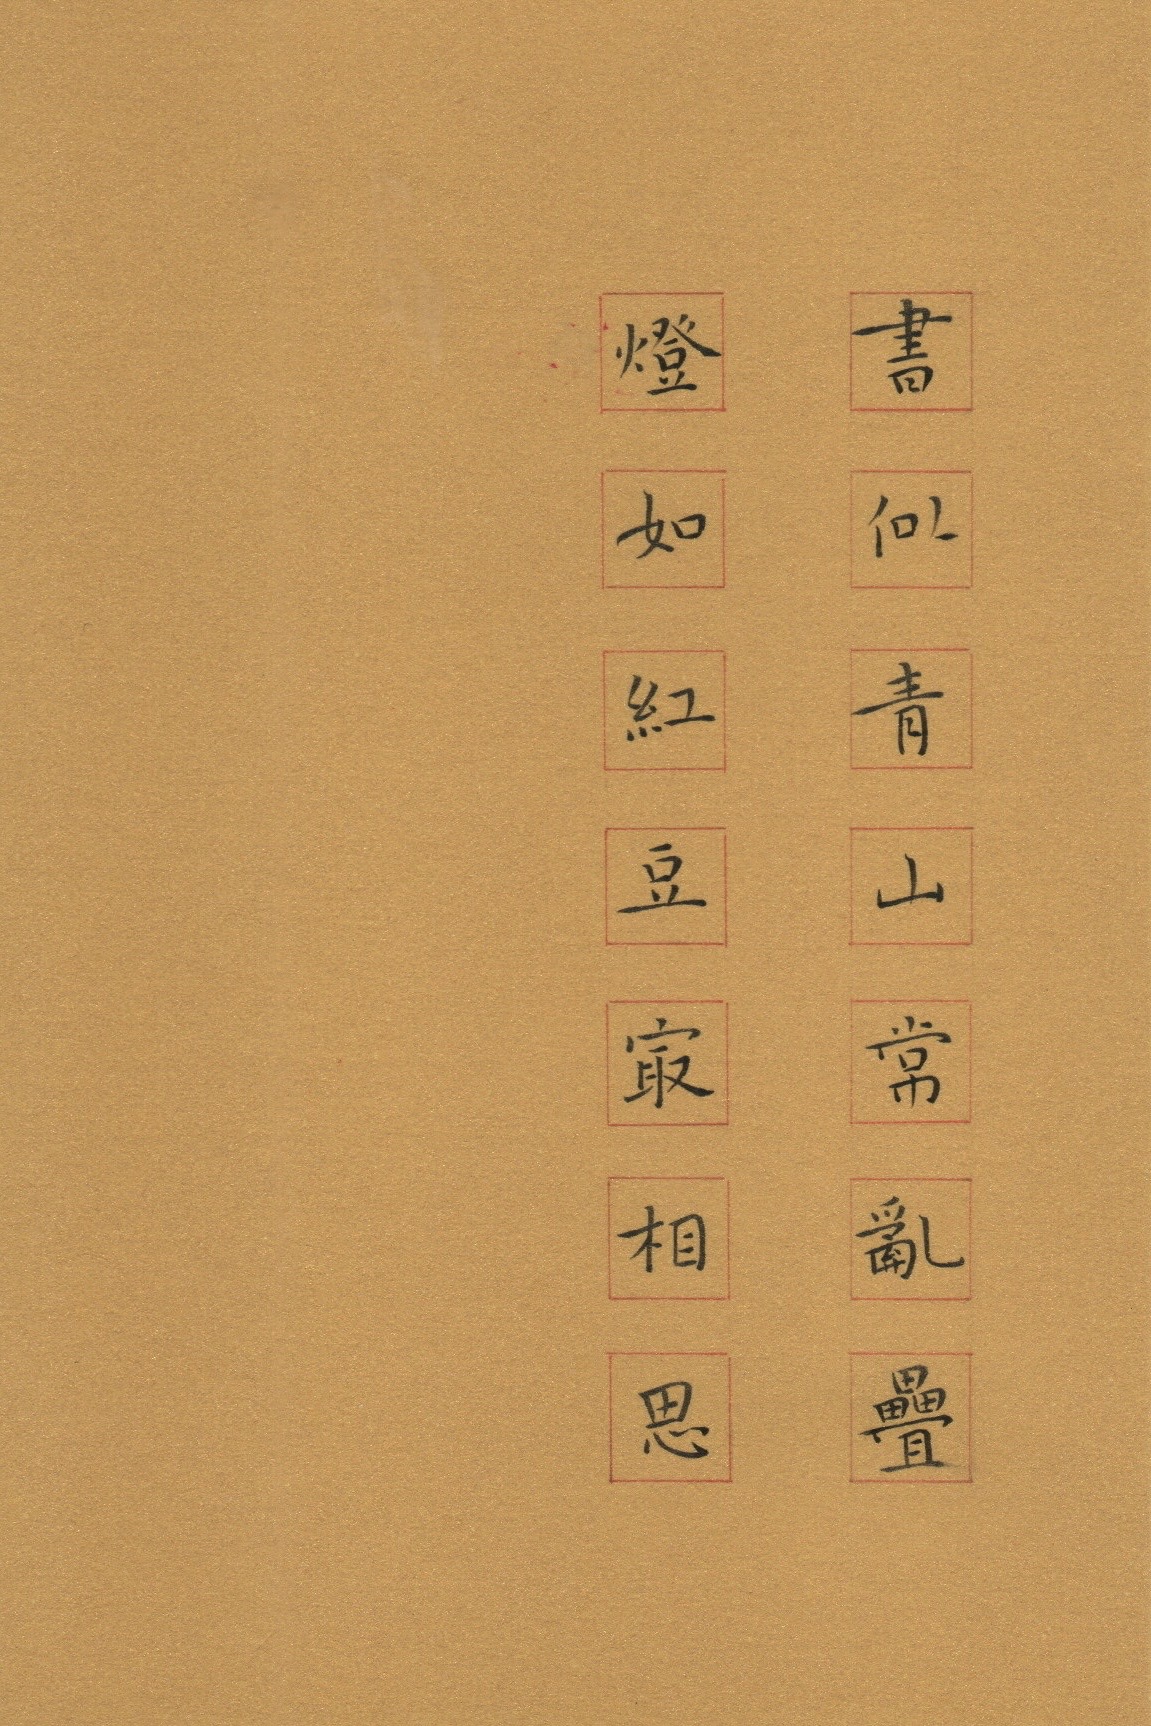 書似青山常亂疊
燈如紅豆㝡相思